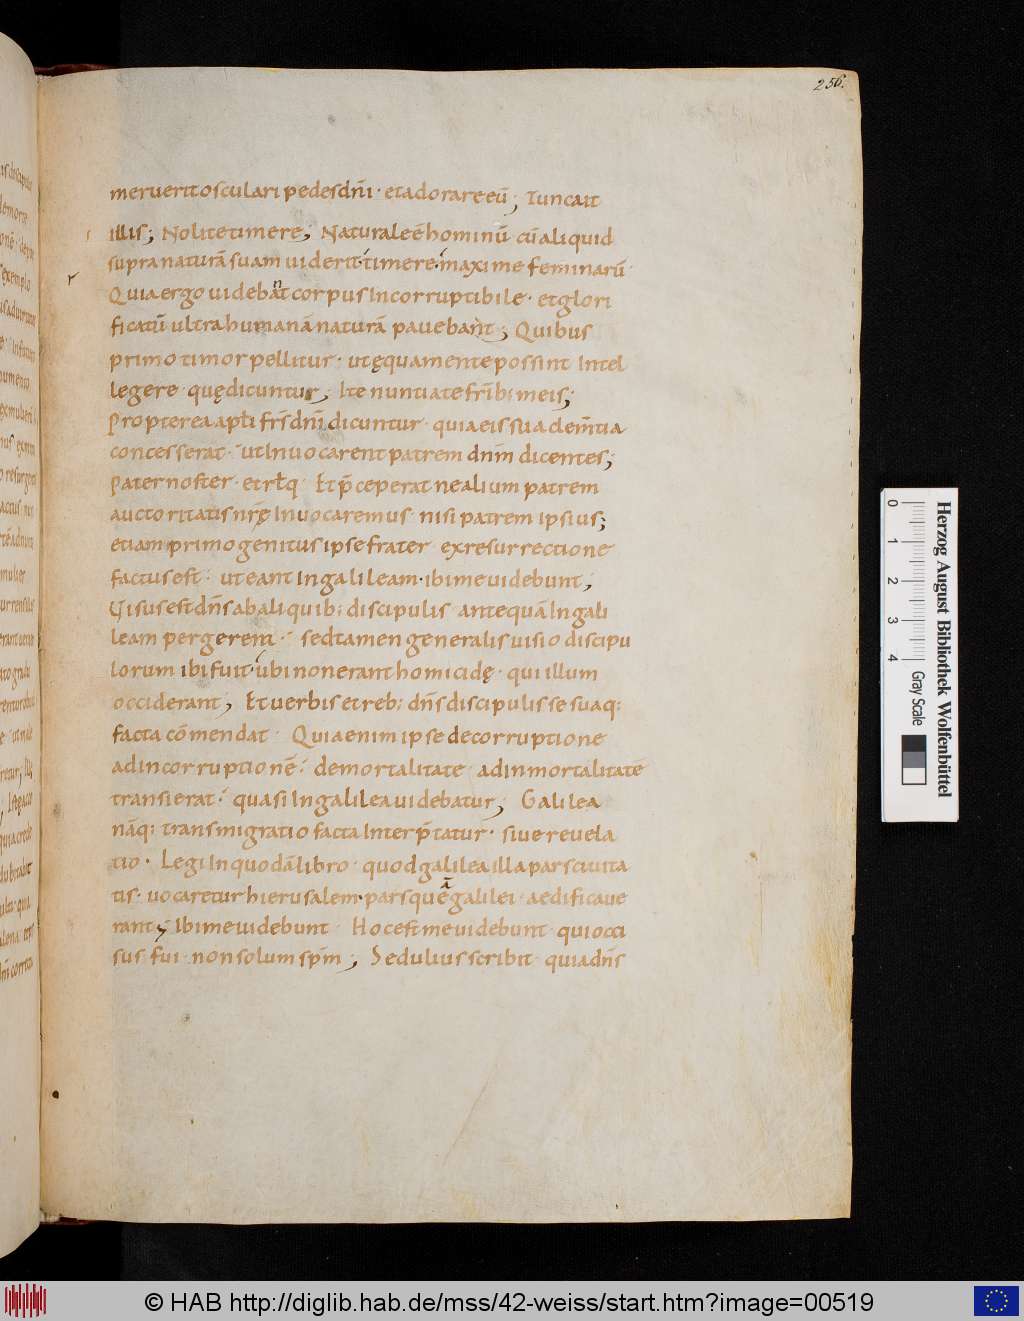 256.
meruerit osculari pedes dn̄i · et adorare eū ; Tunc ait
illis ; Nolite timere ; Naturale ē hominū cū aliquid
supra naturā suam uiderit · timere · maxime feminarū ·
Quia ergo uidebant corpus Incorruptibile · et glori
ficatū ultra humanā naturā pauebant ; Quibus
primo timor pellitur · ut ęqua mente possint Intel
legere quę dicuntur ; Ite nuntiate frīb: meis ;
Propterea apl̄i fr̄s dn̄i dicuntur quia eis sua clem̄tia
concesserat · ut Inuocarent patrem dn̄m dicentes ;
Pater noster · et rl̄q · Et p̄ceperat ne alium patrem
auctoritatis nr̄ę Inuocaremus nisi patrem ipsius ;
etiam primogenitus ipse frater ex resurrectione
factus est · ut eant In galileam · ibi me uidebunt ;
Uisus est dn̄s ab aliquib: discipulis antequā In gali
leam pergerent · sed tamen generalis uisio discipu
lorum ibi fuit · ubi non erant homicidę · qui illum
occiderant ; Et uerbis et reb: dn̄s discipulis se suaq:
facta cōmendat Quia enim ipse de corruptione
ad incorruptionē · de mortalitate ad inmortalitatē
transierat · quasi In galilea uidebatur ; Galilea
nāq: transmigratio facta Interp̄tatur · siue reuela
tio · Legi In quodā libro · quod galilea illa pars ciuita
tis · uocaretur hierusalem · pars quē galilei · aedificaue
rant ; Ibi me uidebunt Hoc est me uidebunt qui occi
sus fui · non solum sp̄m ; Sedulius scribit quia dn̄s
Herzog August Bibliothek Wolfenbüttel
0 1 2 3 4 Gray Scale
© HAB http://diglib.hab.de/mss/42-weiss/start.htm?image=00519